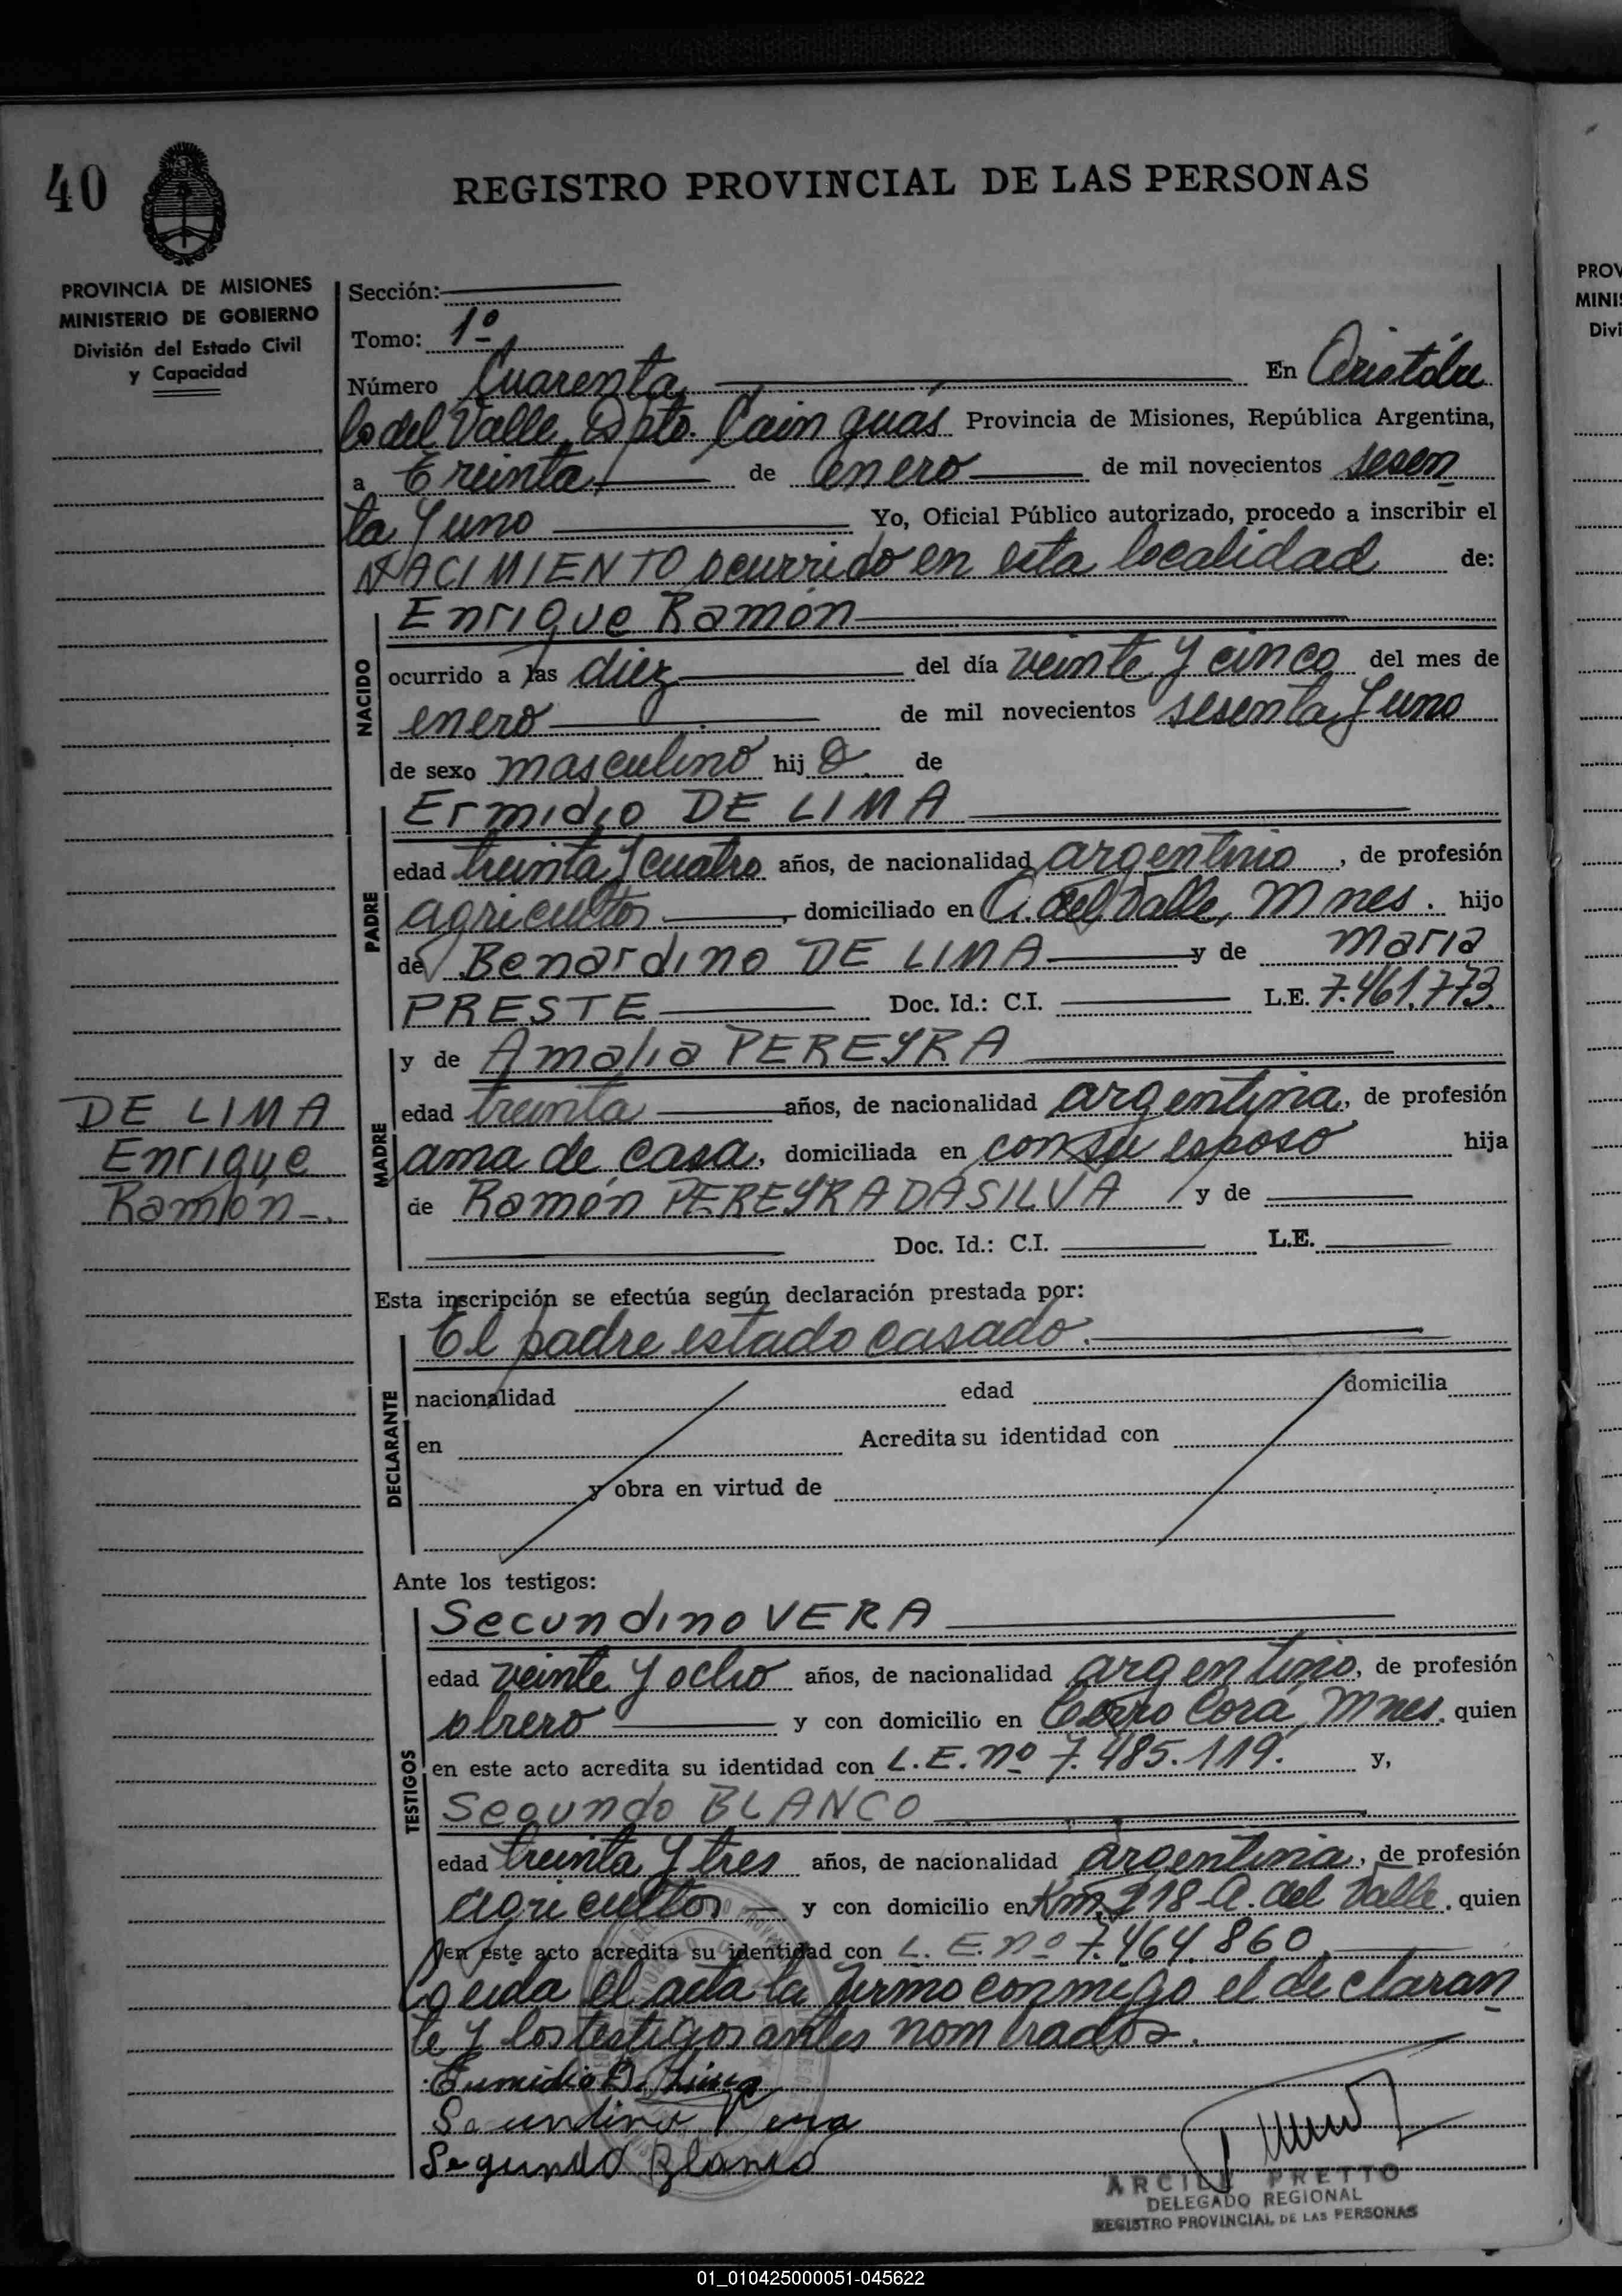 40
REGISTRO PROVINCIAL DE LAS PERSONAS
PROVINCIA DE MISIONES
MINISTERIO DE GOBIERNO
División del Estado Civil
y Capacidad
Sección:
Tomo: 1º
Número Cuarenta En Aristóbu
lo del Valle, Dpto. Cainguás Provincia de Misiones, República Argentina,
a Treinta de enero de mil novecientos sesen
ta y uno Yo, Oficial Público autorizado, procedo a inscribir el
NACIMIENTO ocurrido en esta localidad de:
NACIDO
Enrique Ramón
ocurrido a las diez del día veinte y cinco del mes de
enero de mil novecientos sesenta y uno
de sexo masculino hij o de
PADRE
Ermidio DE LIMA
edad treinta y cuatro años, de nacionalidad argentino, de profesión
agricultor, domiciliado en A. del Valle, Mnes. hijo
de Benardino DE LIMA y de Maria
PRESTE Doc. Id.: C.I. L.E. 7.461.773.
MADRE
y de Amalia PEREYRA
edad treinta años, de nacionalidad argentina, de profesión
ama de casa, domiciliada en con su esposo hija
de Ramón PEREYRA DASILVA y de
Doc. Id.: C.I. L.E.
DE LIMA
Enrique
Ramón-.
Esta inscripción se efectúa según declaración prestada por:
DECLARANTE
El padre estado casado.
nacionalidad edad domicilia
en Acredita su identidad con
y obra en virtud de
Ante los testigos:
TESTIGOS
Secundino VERA
edad veinte y ocho años, de nacionalidad argentino, de profesión
obrero y con domicilio en Cerro Corá, Mnes. quien
en este acto acredita su identidad con L.E. nº 7.485.119. y,
Segundo BLANCO
edad treinta y tres años, de nacionalidad argentina, de profesión
agricultor y con domicilio en Km. 218-A. del Valle. quien
en este acto acredita su identidad con L.E. nº 7.464.860
Leida el acta la firmo conmigo el declaran
te y los testigos antes nombrados.
Secundino Vera
Segundo Blanco
PRETTO
DELEGADO REGIONAL
REGISTRO PROVINCIAL DE LAS PERSONAS
PROV
MINIS
Divi
01_010425000051-045622